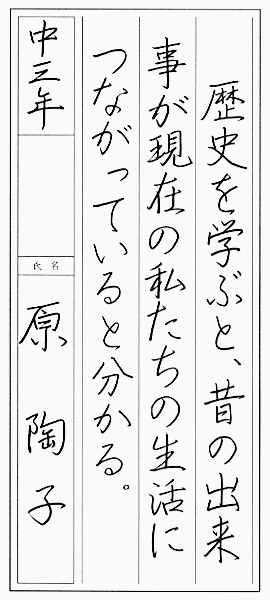 歴史を学ぶと、昔の出来
事が現在の私たちの生活に
つながっていると分かる。
中三年
氏名
原陶子